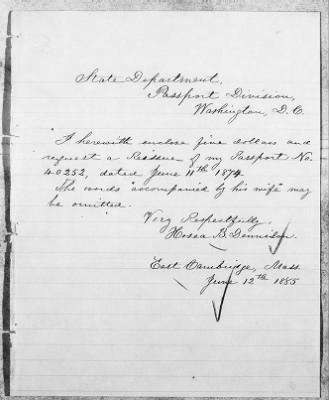 State Department,
Passport Division,
Washington, D.C.
I herewith enclose five dollars and
request a Reissue of my Passport No.
40252, dated June 11th 1874.
The words "accompanied by his wife" may
be omitted.
Very Respectfully,
Hosea B. Dennison.
East Cambridge, Mass.
June 12th 1885